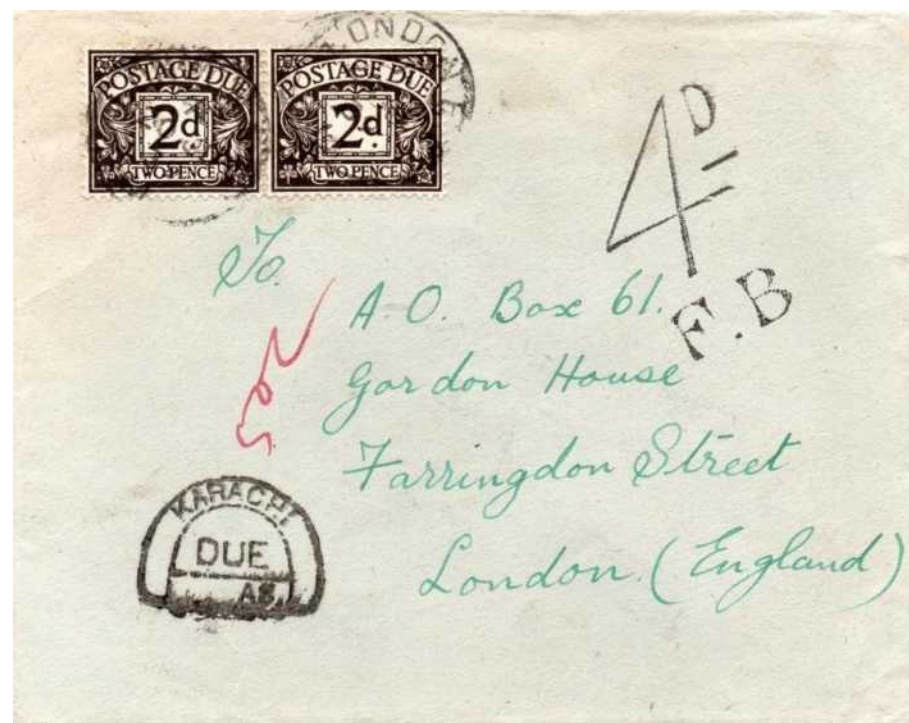 POSTAGE DUE
2d
TWO PENCE
POSTAGE DUE
2d
TWO PENCE
LONDON
4D
F.B
To.
A.O. Box 61.
Gordon House
Farringdon Street
London. (England)
KARACHI
DUE
AS.